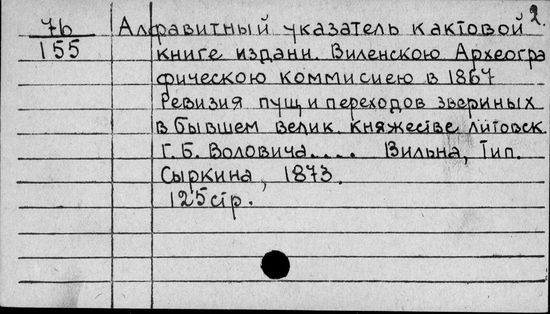 2.
7b Алфавитный указатель к актовой
155 книге издани. Виленскою Археогра
фическою коммисиею в 1867
Ревизия пущ и переходов звериных
в бывшем велик. княжестве литовск.
Г. Б. Воловича.... Вильна, Тип.
Сыркина, 1873.
125 стр.